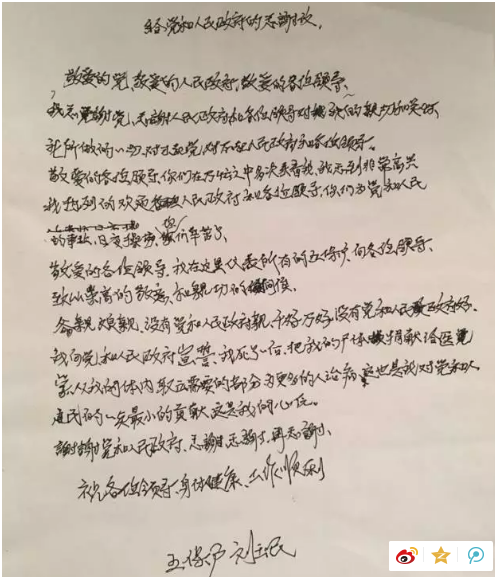 给党和人民政府的感谢次,
敬爱的党,敬爱的人民政府,敬爱的各位领导、
我感谢党,感谢人民政府和各位领导对我的亲切和关怀
我所做的一切对不起党,对不起人民政府和各位领导。
敬爱的各位领导,你们在百忙之中多次来看我,我感到非常高兴
我热列的欢迎人民政府和各位领导,你们为党和人民
的事业,日夜操劳,你们辛苦了、
敬爱的各位领导,我在这里代表所有的五保户向各位领导、
致以崇高的敬意,和亲切的问侯。
爹亲娘亲,没有党和人民政府亲,千好万好没有党和人民政府好.
我向党和人民政府宣誓,我死了后,把我的尸体捐献给医
学、从我的体内取出需要的部分为更多的人治病这也是我对党和人
民的一次最小的贡献,这是我的心低。
谢谢党和人民政府、感谢、感谢、再感谢、
祝各位领导身体健康、工作顺利
五保户 刘云民